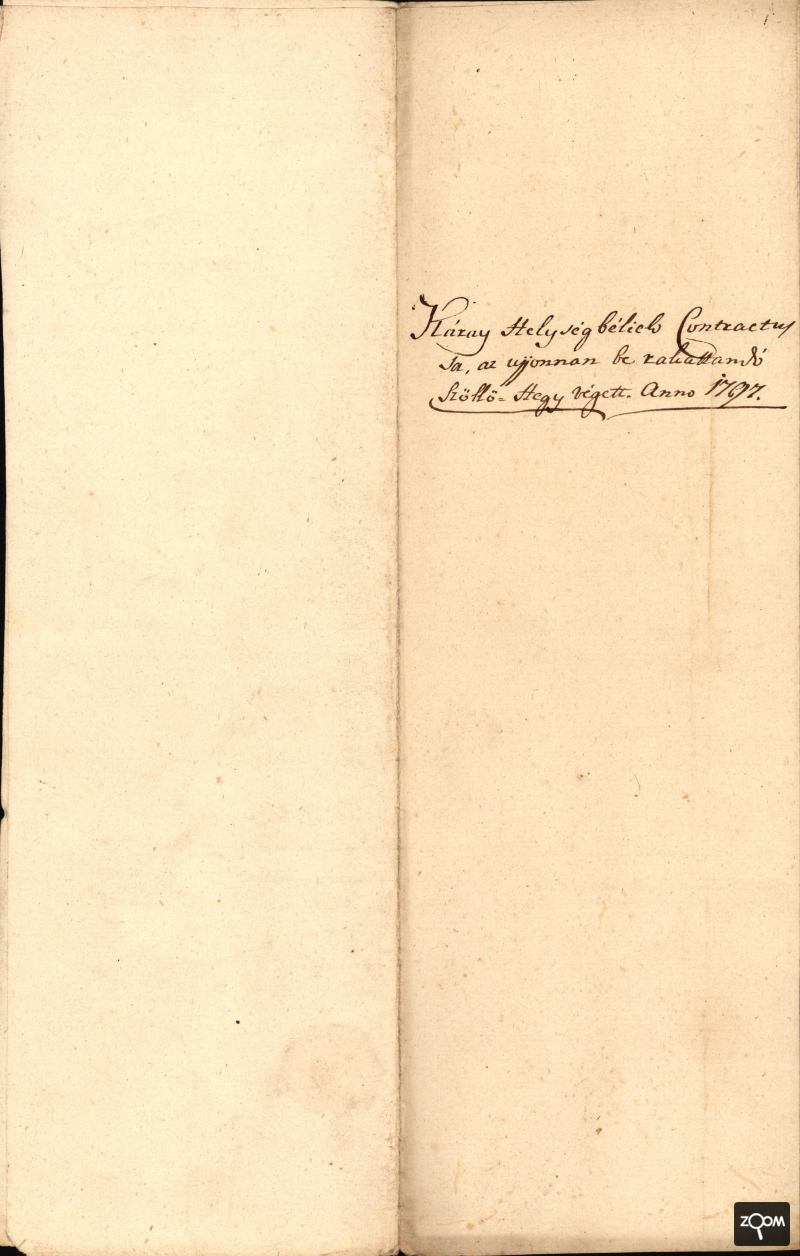 Káray Helységbéliek Contractus
sa, az ujonnan be rakattandó
Szőllő=Hegy végett. Anno 1797.
ZOOM